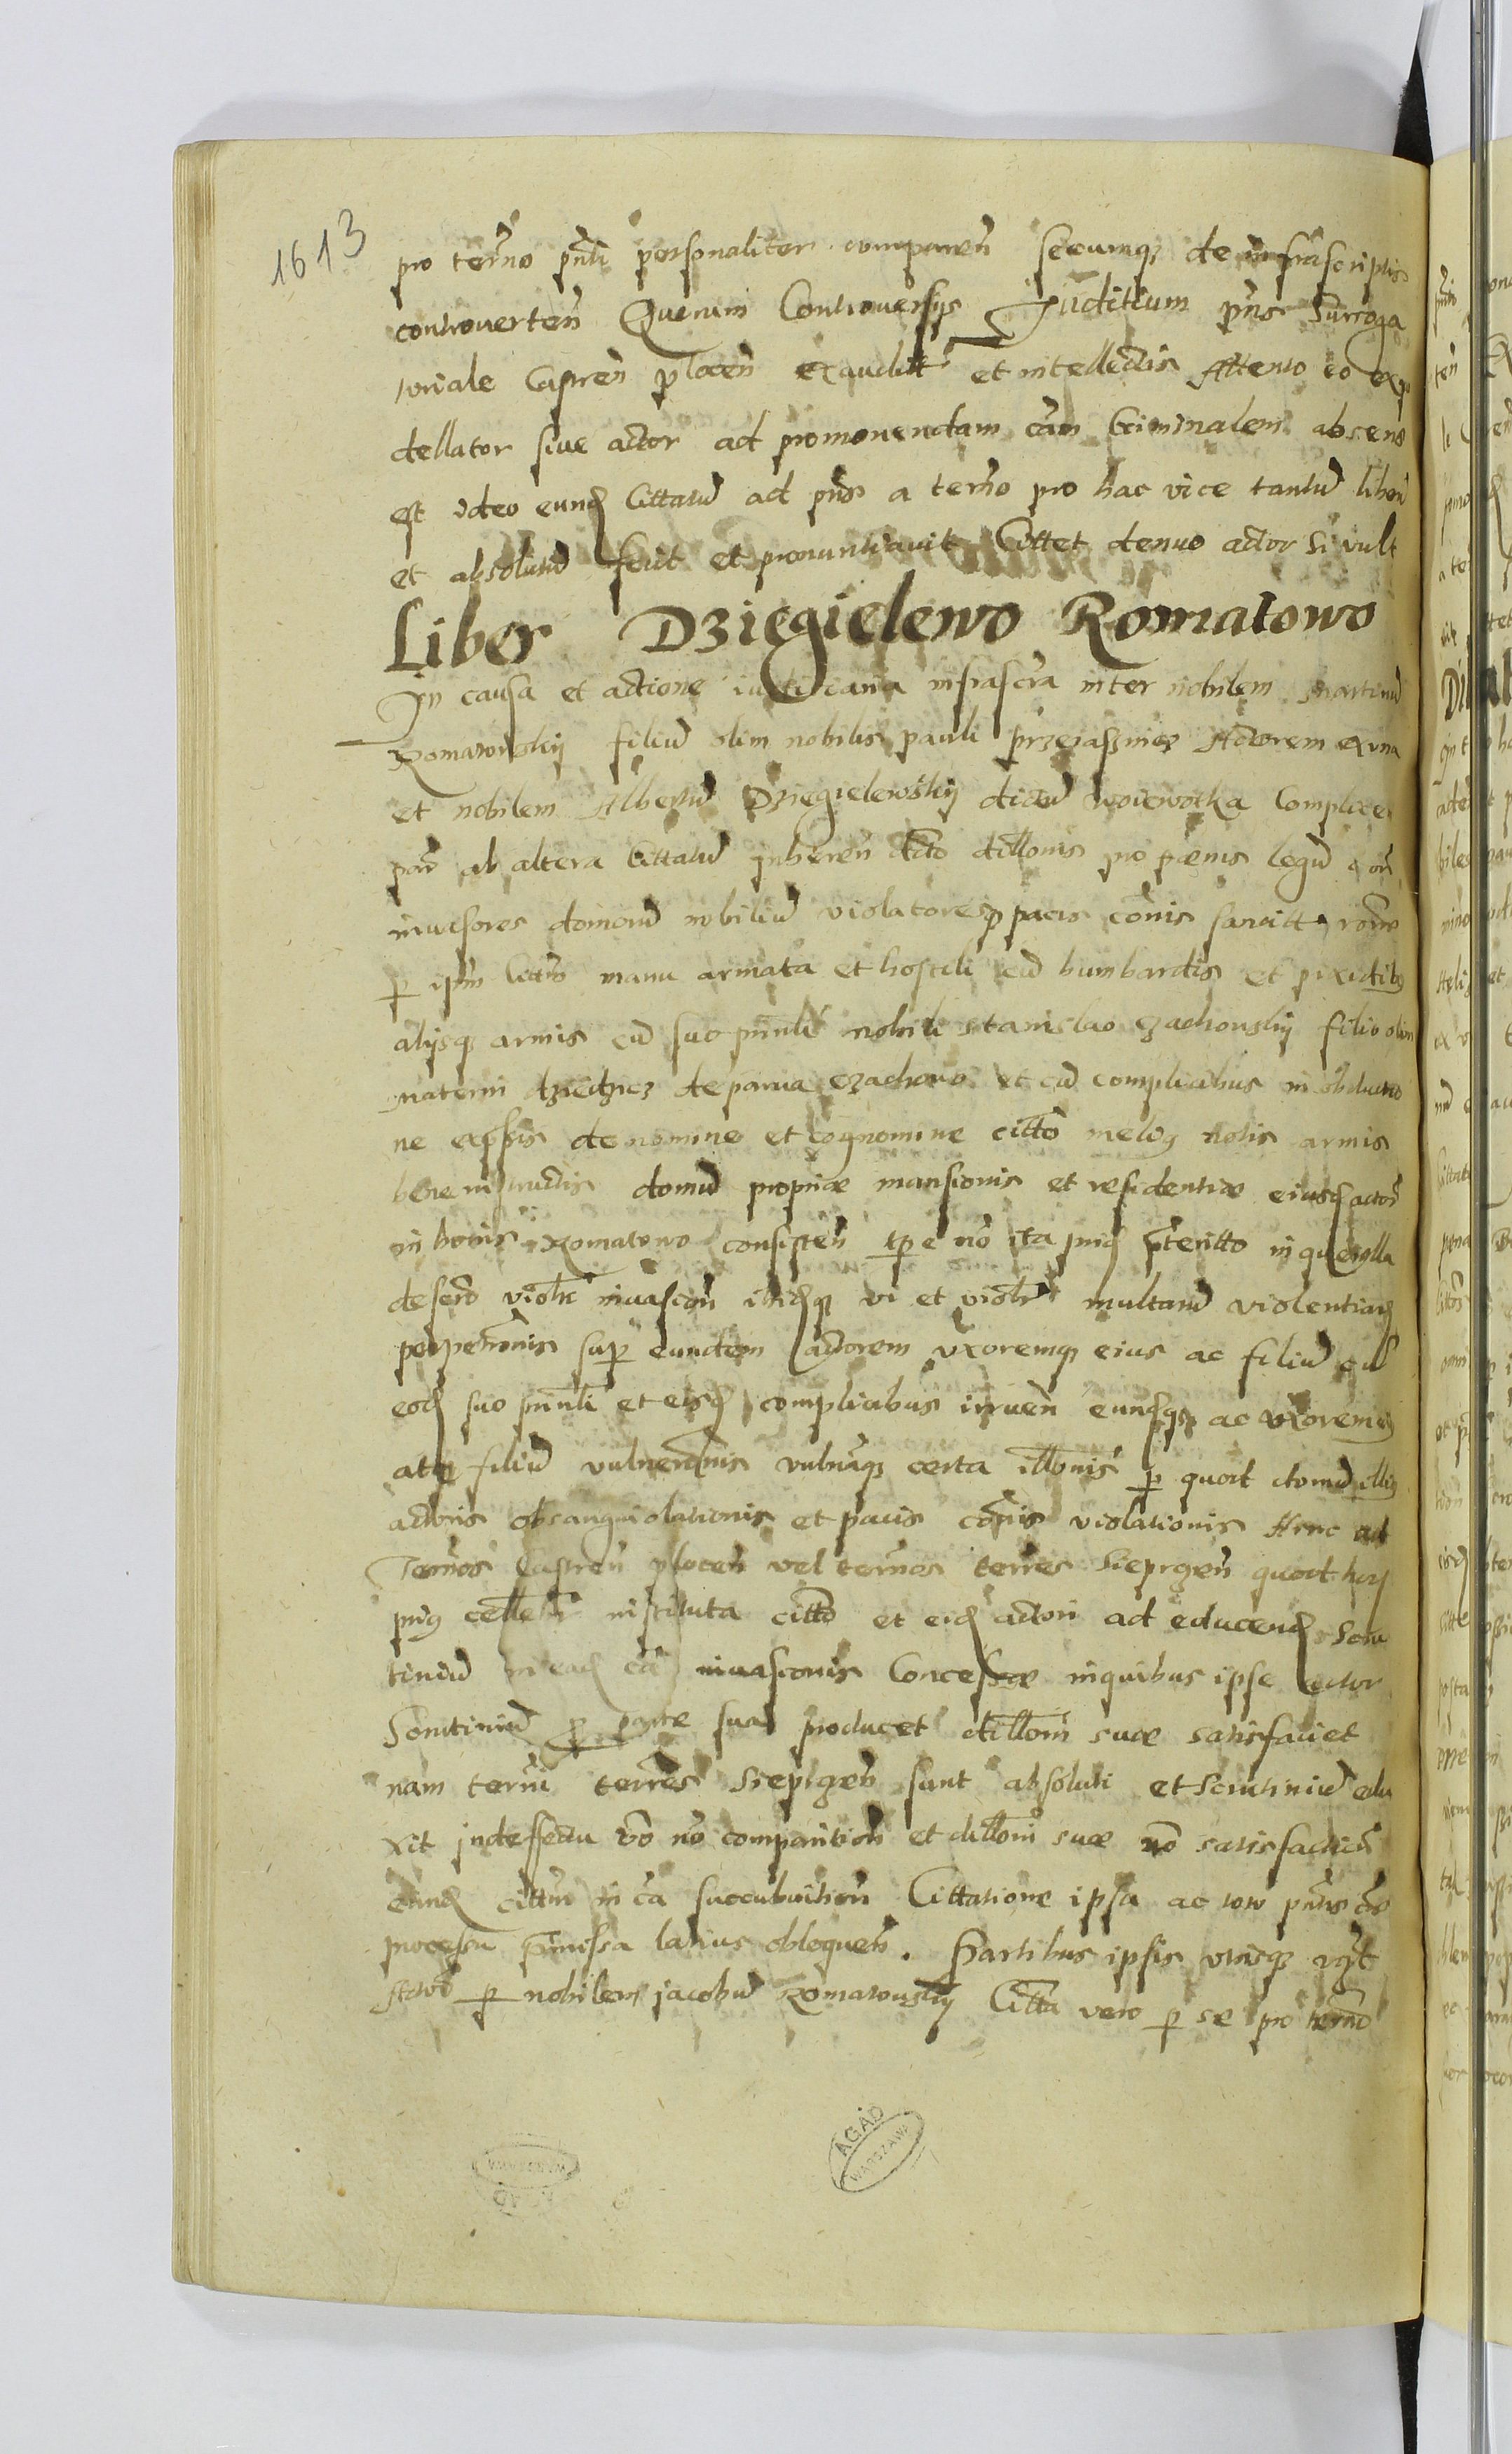 1613
pro termo pnti personaliter comparen secumq de infrascriptis
controverten Quorum Controversiis Juditium pns Surroga
toriale Castren plocen exauditt et intellectis Attento eo qr
dellator sive actor ad promovendam cam Criminalem absens
est ideo eund Cittatu ad pns a termo pro hac vice tantu liberu
et absolutu fecit et pronuntiavit Cittet denuo actor si vult
Liber Dziegielewo Romatowo
In causa et actione infrascra inter nobilem martinu
Romatowskij filiu olim nobilis pauli Actorem ex una
et nobilem Albertu Dziegielewskij dictu woiewotka Complicem
ab altera Cittatu inheren dcto dillonis pro paenis legu con
invasores domoru nobiliu violatoresq pacis cois sancitt
p ipm manu armata et hostili cu bumbardis et pixidibq
alijsq armis cu suo prnli nobili stanislao czachowskij filio olim
de parva czachowo et cu complicibus in
ne expssis de nomine et cognomine citto meliq notis armis
bene instructis domu propriae mansionis et residentiae eiusd actor
in bonis Romatowo consisten tpe no ita prid pteritto in querella
deserto violte invasion ibidq vi et violte multaru violentiaru
perpetronis sup eundem actorem uxoremq eius ac filiu cu
eod suo prnli et eisd complicibus irruen eundq ac uxoremq
atq filiu vulneronis vulnaq certa illonis p quod domu illiq
actoris obsanguiolationis et pacis cois violationis Hinc ad
Termos Castren plocen vel termos terres Sieprcen quoad huq
prig instituta citto et eid actori ad educend scru
tiniu in ead ca invasionis Concessae in quibus ipse actor
Scrutiniu p parte sua producet dilloni suae satisfaciet
nam termi terres Sieprcen sunt absoluti et scrutiniu edu
xit in deffectu vo no comparition et dilloni suae no satisfaction
eund cittu in ca succubuition Cittatione ipsa ac toto pntis cae
processu pmissa latius obloquen. Partibus ipsis utriq
p nobilem jacobu Romatowskij Citta vero p se pro termo
AGAD
WARSZAWA